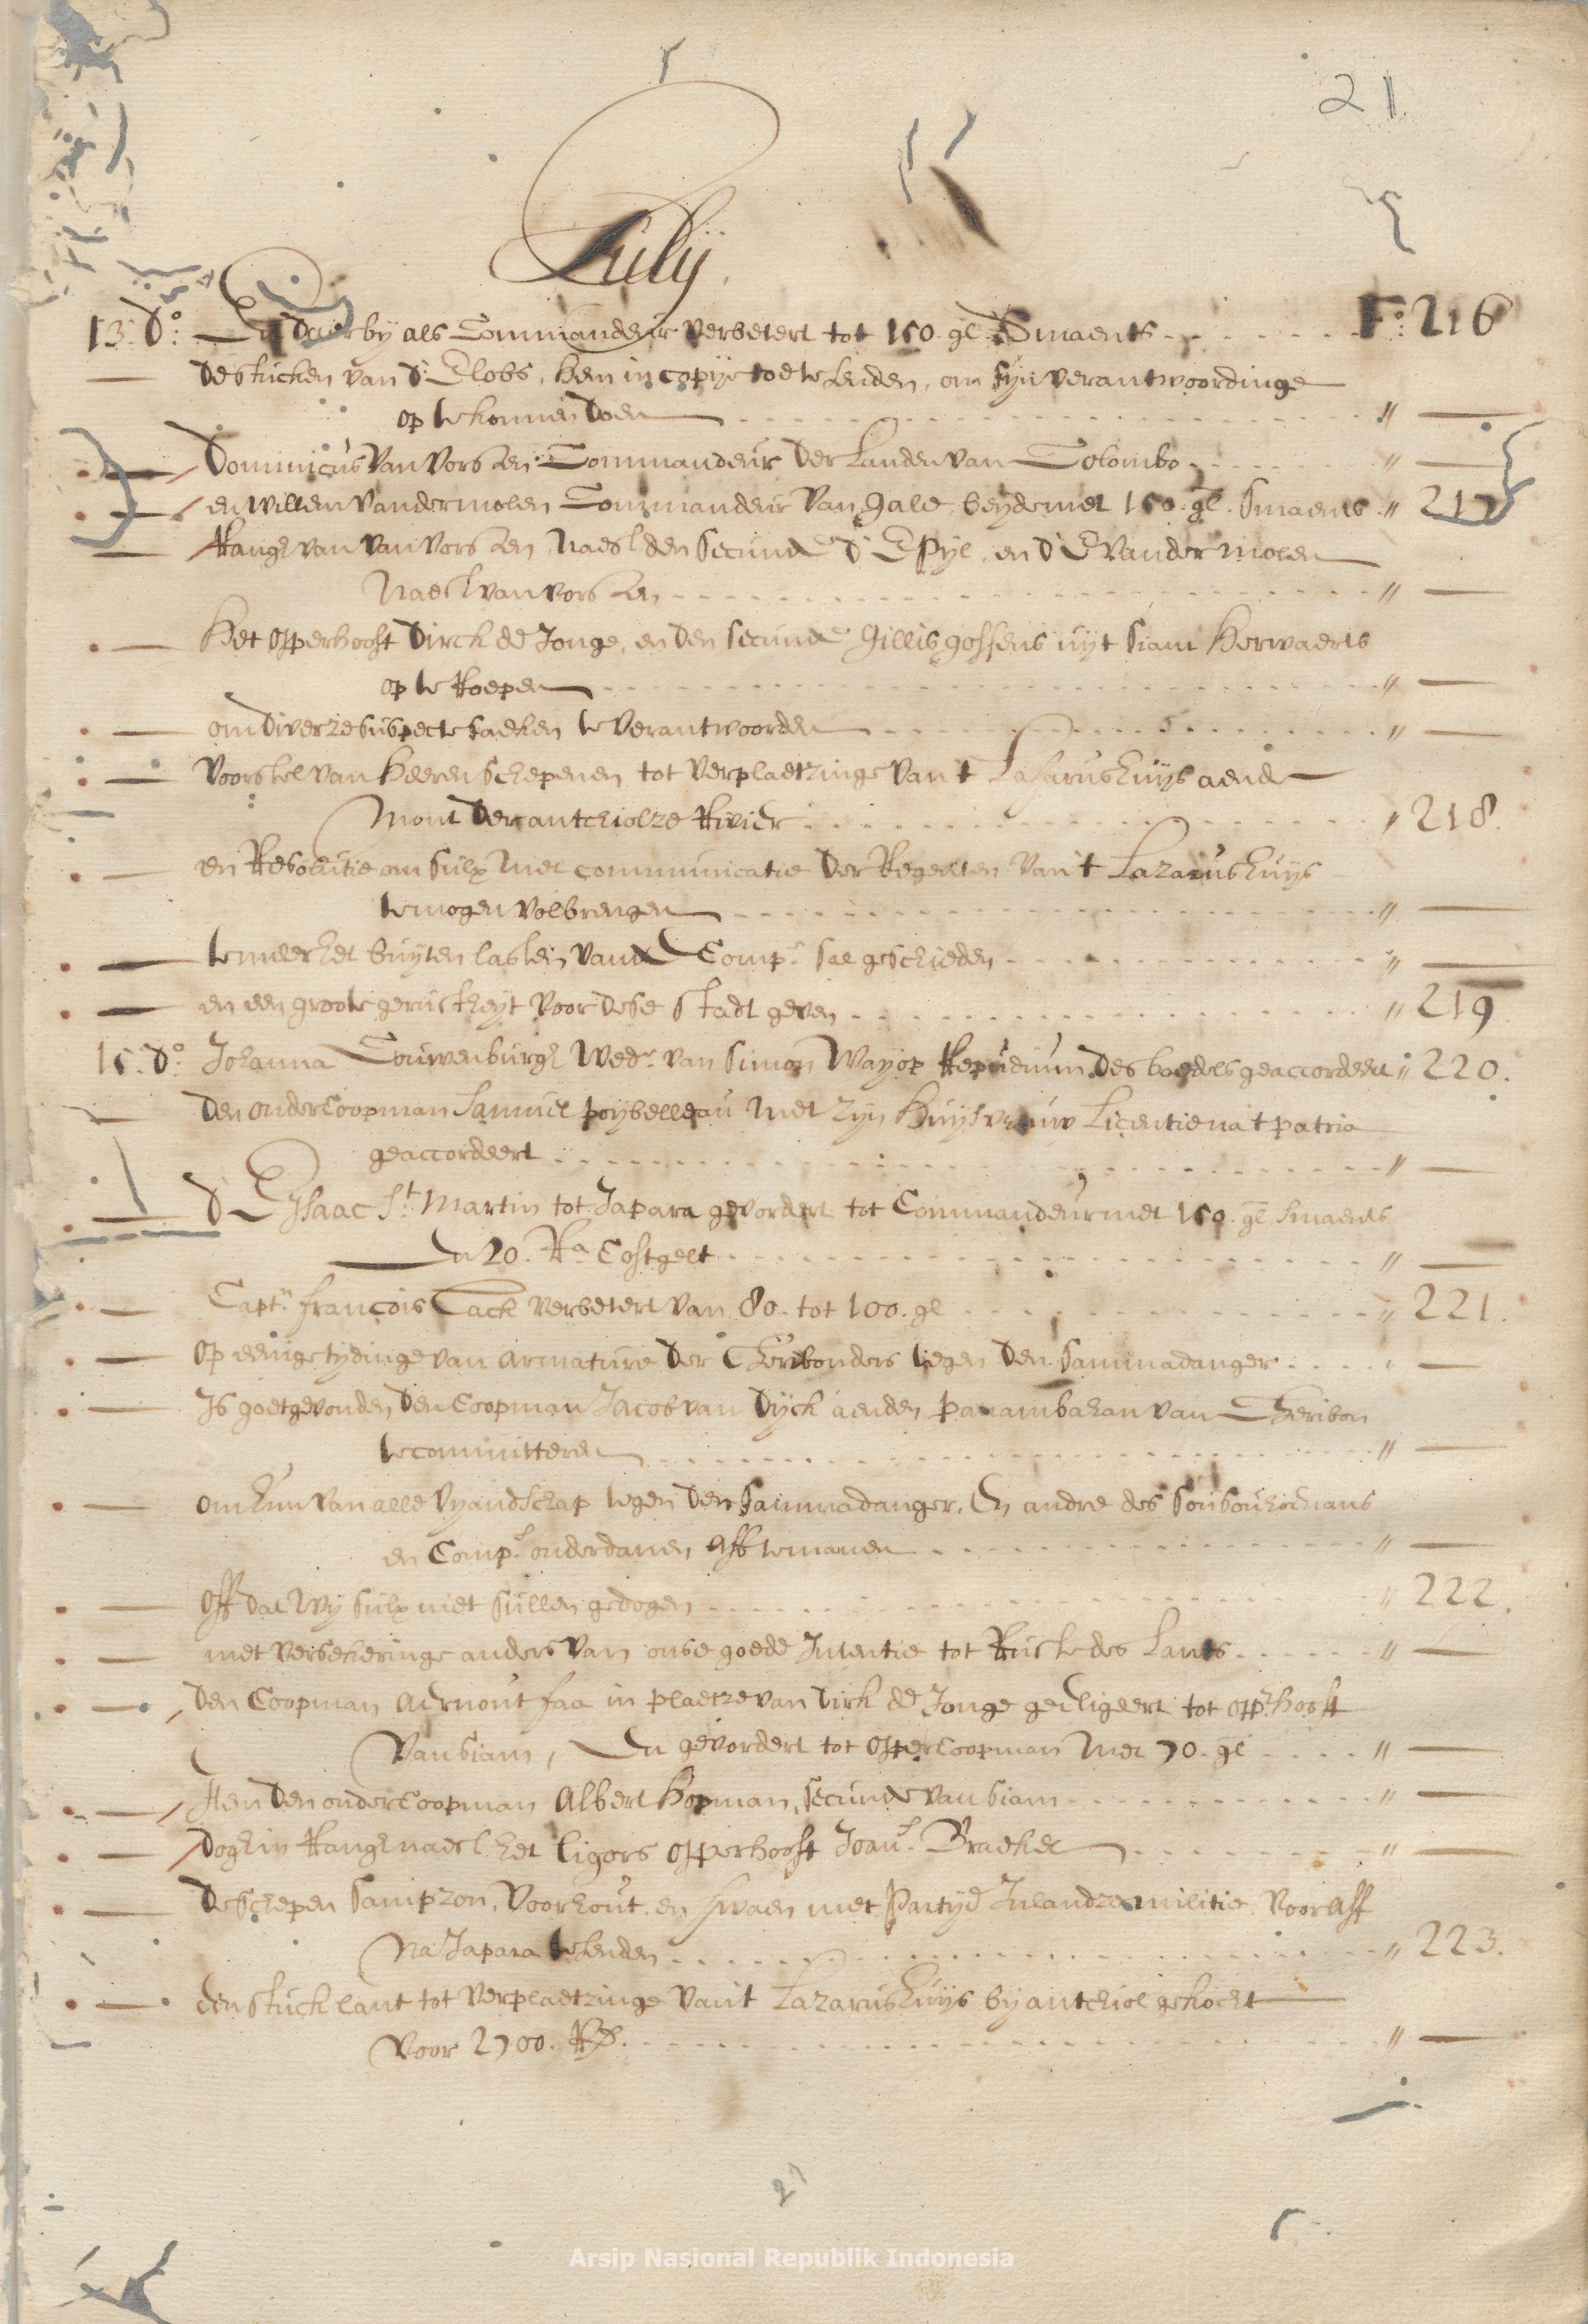 21.
Julij
13. d.o En daer by als Commandeur verbetert tot 150. gl. Smaents F.o 216
de stucken van d' E Lobs, hem in copije toe te senden, om syn verantwoordinge
op te konnen doen "
Dominicus van vorsten Commandeur der Landen van Colombo "
en willem vander molen Commandeur van Gale, beyde met 150. gl. Smaents " 217
Rangh van van vorsten naest den secunde d' E Pijl, en d' E vander molen
Naest van vorsten "
Het opperhooft Dirck de Jonge, en den secunde Gillis gossens uijt Siam herwaerts
op te Roepen "
om diverze suspecte saeken te verantwoorden "
voorstel van heeren schepenen tot verplaetzinge van 't Lasarushuijs aende
Mont der antchiolze Rivier " 218.
en Resolutie om sulx met communicatie der Regenten van 't Lazarushuijs
te mogen volbrengen "
te meer het buijten lasten vande Comp.e sal geschieden "
en een groote gerustheyt voor dese stadt geven " 219
15. d.o Johanna Couwenburgh Wed.e van Simon Wayop Repudium des boedels geaccordeert " 220.
den ondercoopman Samuel poijbelleau met zijn huijsvrouw Licentie na 't patria
geaccordeert "
d' E Isaac S.t Martin tot Japara gevordert tot Commandeur met 150. gl. smaents
En 20. R.a Costgelt "
Capt.n françois Tack verbetert van 80. tot 100. gl. " 221.
op eenige tydinge van armature der Cheribonders tegen den Sammadanger "
Is goetgevonden den Coopman Jacob van Dyck aenden panambahan van Cheribon
te committeren "
om hun van alle vyandschap tegen den Sammadanger, En andre des Sousouhounans
en Comp.s onderdanen aff te manen "
Off dat wy sulx niet sullen gedogen " 222.
met versekeringe anders van onse goede Intentie tot Ruste des Lants "
den Coopman Aernout faa in plaetze van Dirk de Jonge geeligeert tot opp.rhooft
Van Siam, En gevordert tot oppercoopman met 70. gl "
Item den ondercoopman Albert Hopman, secunde van Siam "
dogh in Rangh naest het Ligors opperhooft Joan.s Braekel "
de schepen Sampzon, Voorhout, en Swaen met Partyd Inlandze militie, vooraff
Na Japara te senden " 223.
een stuck lant tot verplaetzinge van 't Lazarushuijs by antchiol gekocht
voor 2700. R.x "
27
Arsip Nasional Republik Indonesia